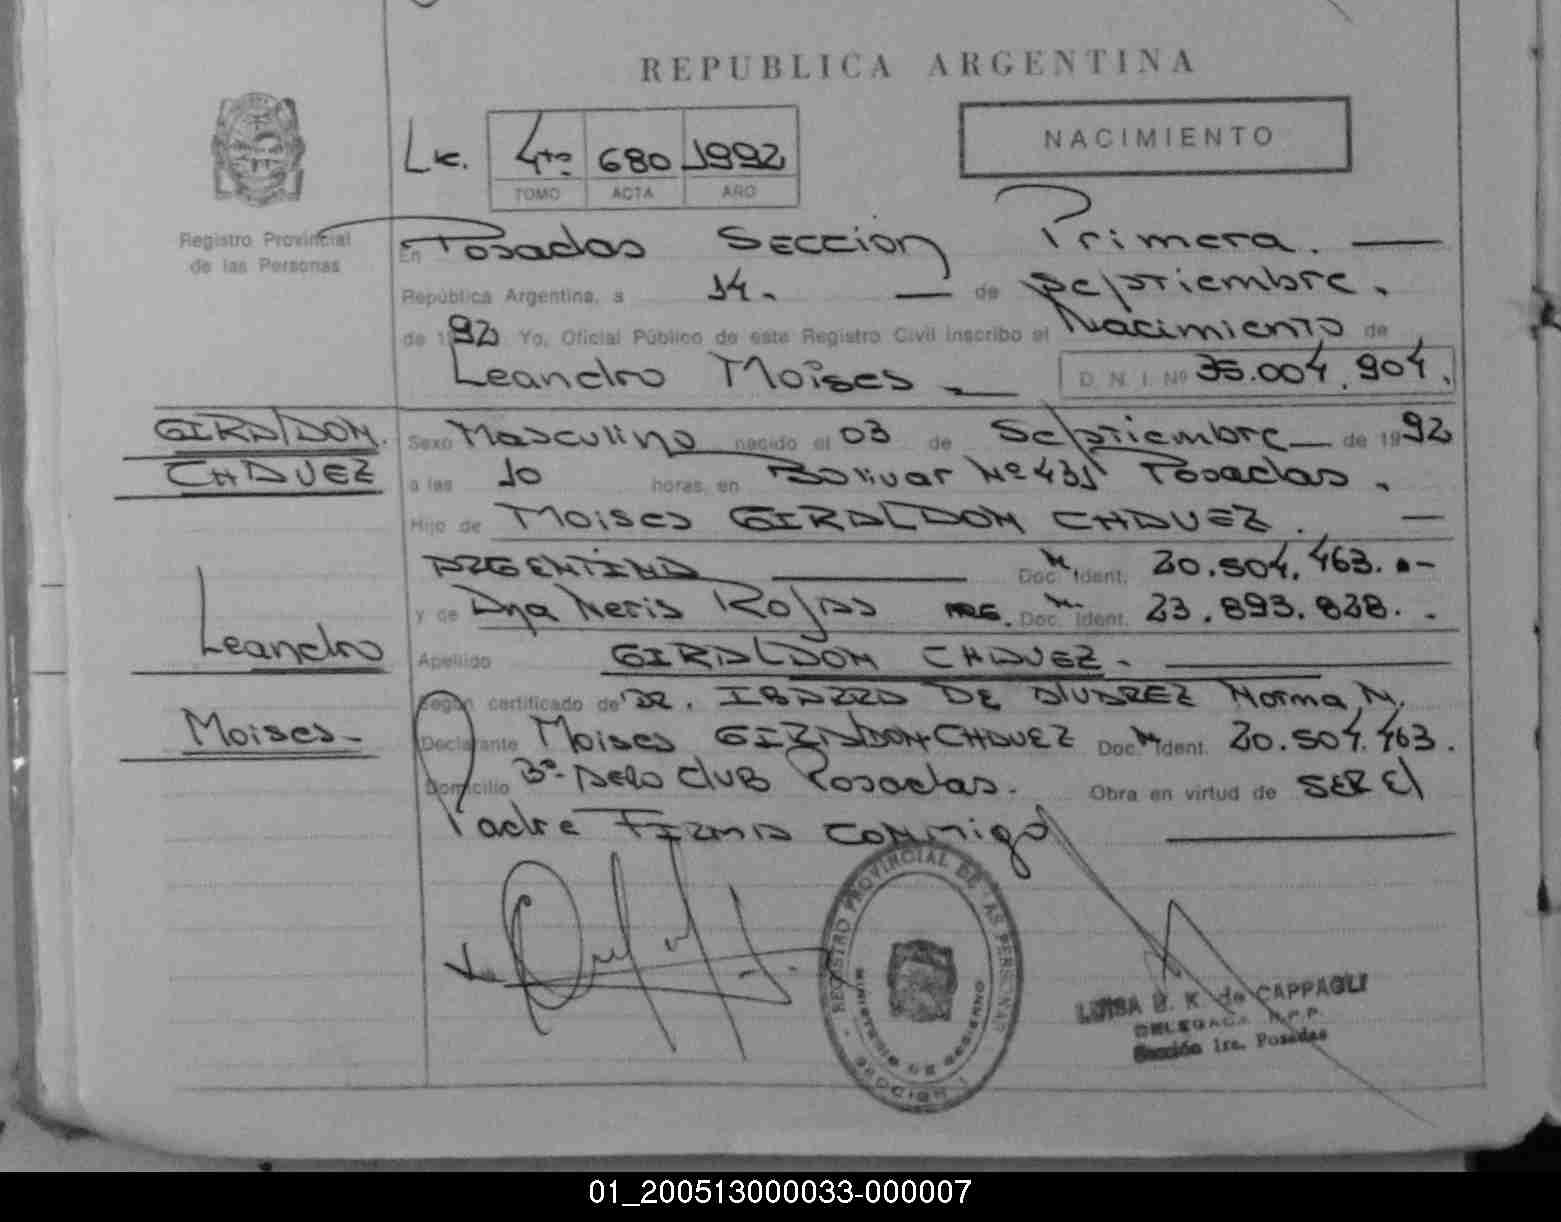 REPUBLICA ARGENTINA
NACIMIENTO
Lic. 4to 680 1992
TOMO ACTA AÑO
Registro Provincial
de las Personas
En Posadas Sección Primera.
República Argentina, a 14. de Septiembre.
de 1992 Yo, Oficial Público de este Registro Civil inscribo el Nacimiento de
Leandro Moises D. N. I. Nº 35.004.904.
GIRALDON
CHAVEZ
Sexo Masculino nacido el 03 de Septiembre de 1992
a las 10 horas, en Bolivar Nº 431 Posadas.
Hijo de Moises GIRALDON CHAVEZ.
ARGENTINA Doc. Ident. 20.504.463.
y de Ana Neris Rojas ARG. Doc. Ident. 23.893.828.
Leandro
Apellido GIRALDON CHAVEZ.
Según certificado de DR. IBARRA DE ALVAREZ Norma N.
Moises
Declarante Moises GIRALDON CHAVEZ Doc. Ident. 20.504.463.
Domicilio 3º Aero Club Posadas. Obra en virtud de SER El
Padre FIRMA conmigo
REGISTRO PROVINCIAL DE LAS PERSONAS
MINISTERIO DE GOBIERNO
SECCION 1
LUISA B. K. de CAPPAGLI
DELEGADA R.P.P.
Sección 1ra. Posadas
01_200513000033-000007